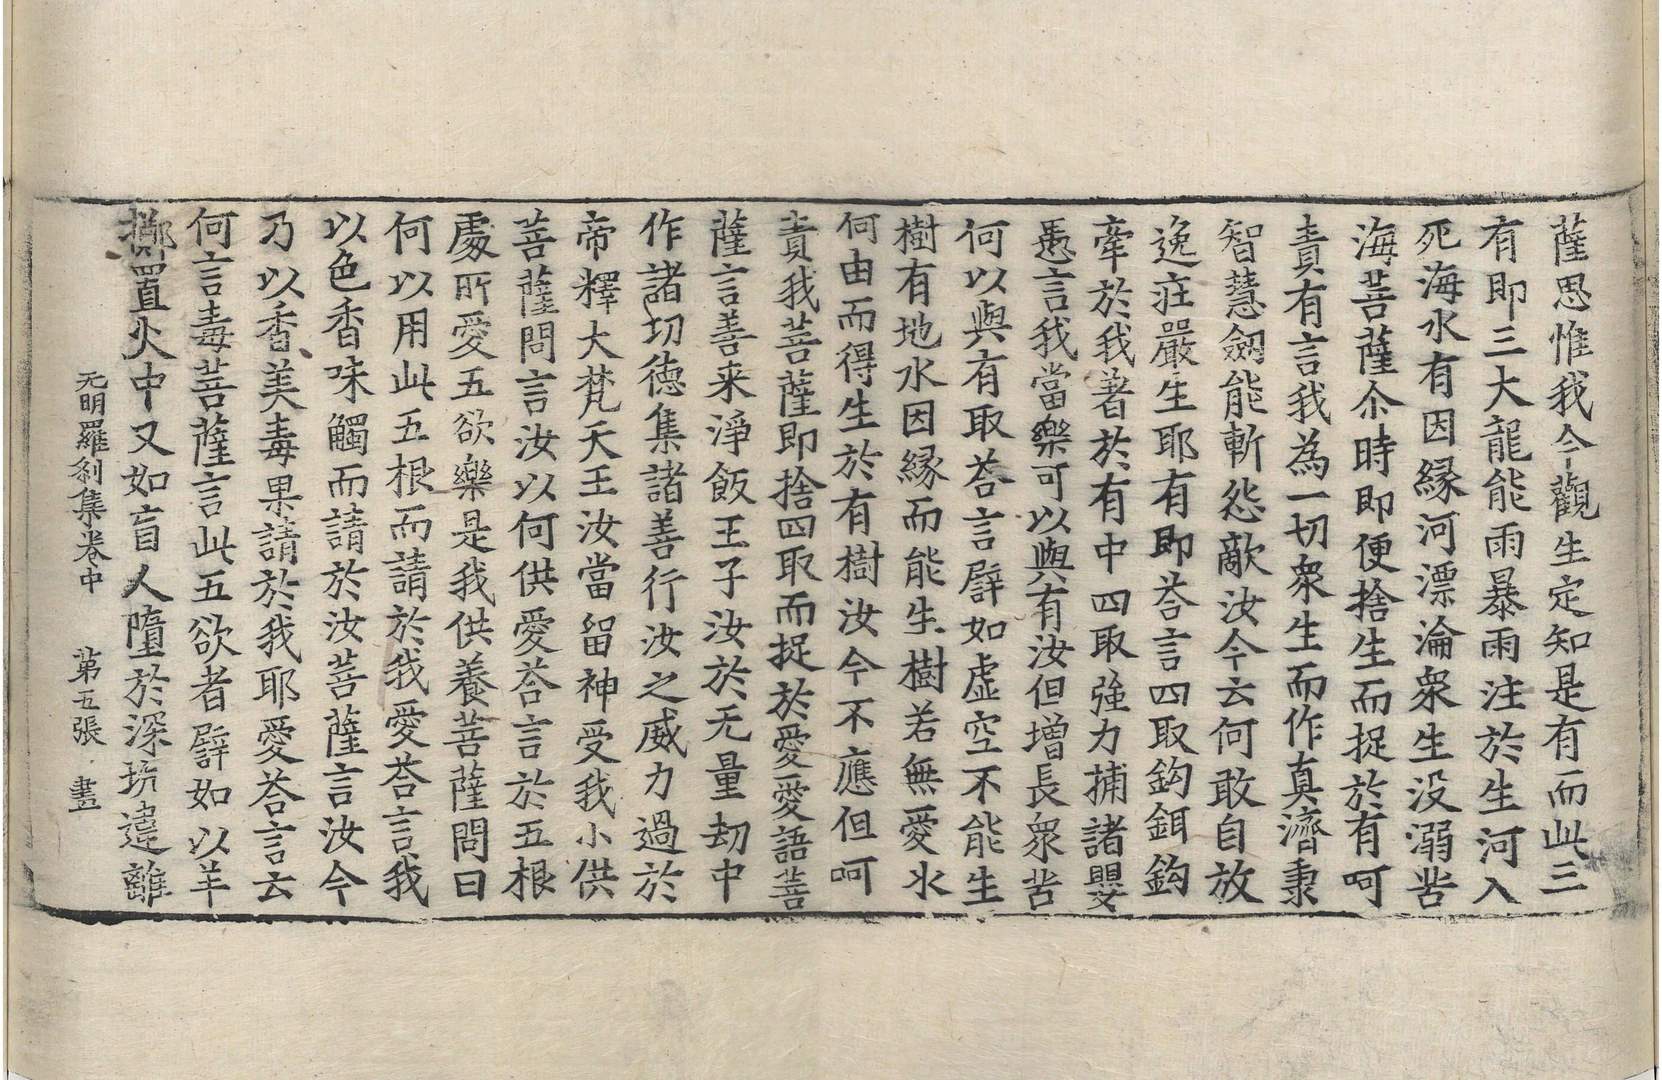 薩思惟我今觀生定知是有而此三
有即三大龍能雨暴雨注於生河入
死海水有因縁河漂淪衆生没溺苦
海菩薩尒時即便捨生而捉於有呵
責有言我為一切衆生而作真濟秉
智慧劔能斬怨敵汝今云何敢自放
逸莊嚴生耶有即荅言四取鈎鉺鈎
牽於我著於有中四取強力捕諸嬰
愚言我當樂可以與有汝但增長衆苦
何以與有取荅言譬如虚空不能生
樹有地水因縁而能生樹若無愛水
何由而得生於有樹汝今不應但呵
責我菩薩即捨四取而捉於愛愛語菩
薩言善来淨飯王子汝於无量劫中
作諸切徳集諸善行汝之威力過於
帝釋大梵天王汝當留神受我小供
菩薩問言汝以何供愛荅言於五根
處所愛五欲樂是我供養菩薩問曰
何以用此五根而請於我愛荅言我
以色香味觸而請於汝菩薩言汝今
乃以香美毒果請於我耶愛荅言云
何言毒菩薩言此五欲者譬如以羊
擲置火中又如盲人墮於深坑違離
无明羅刹集卷中 第五張 晝